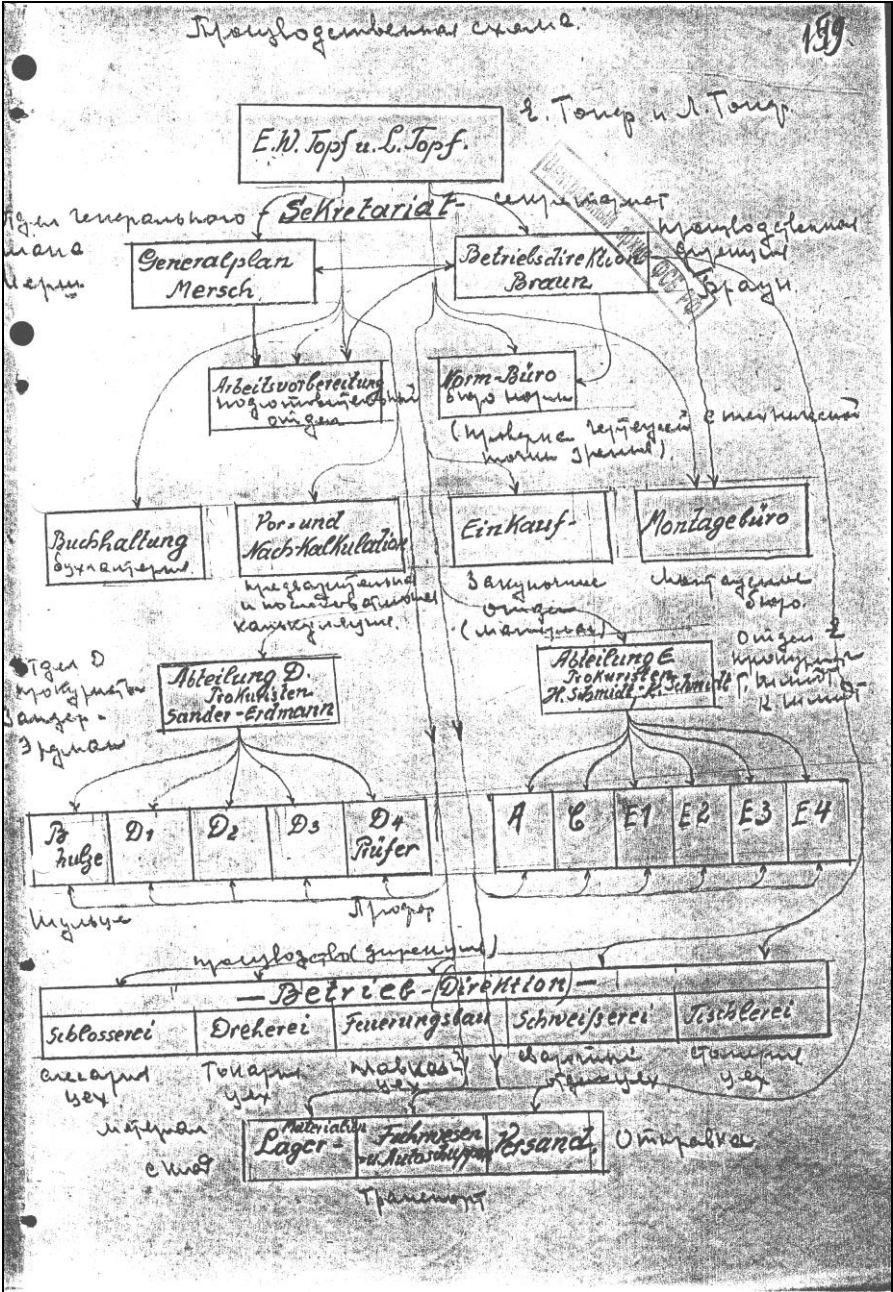 Производственная схема.
199.
E.W. Topf u. L. Topf.
Е. Топф и Л. Топф.
Sekretariat-
секретариат
отдел генерального
плана
Мерш.
Generalplan
Mersch.
Betriebsdirektion
Braun
производственная
дирекция
Браун
Arbeitsvorbereitung
подготовительный
отдел
Norm-Büro
бюро норм
(проверка чертежей с технической
точки зрения).
Buchhaltung
бухгалтерия.
Vor- und
Nach-Kalkulation
предварительная
и последовательная
калькуляция.
Einkauf-
Закупочные
отдел
(материал)
Montagebüro
Монтажное
бюро.
Отдел D
прокуристы
Зандер-
Эрдман
Abteilung D.
Prokuristen
Sander-Erdmann
Abteilung E
Prokuristen
H. Schmidt-K. Schmidt
Отдел E
прокуристы
Г. Шмидт
К. Шмидт
B
D1
D2
D3
D4
Prüfer
A
C
E1
E2
E3
E4
Шульце
Прюфер
производство (дирекция)
— Betrieb-(Direktion) —
Schlosserei
Dreherei
Feuerungsbau
Schweißerei
Tischlerei
слесарня
цех
Токарня
цех
цех
цех
цех
материал
склад
Materialien
Lager-
Fuhrwesen
Versand.
Отправка
Транспорт